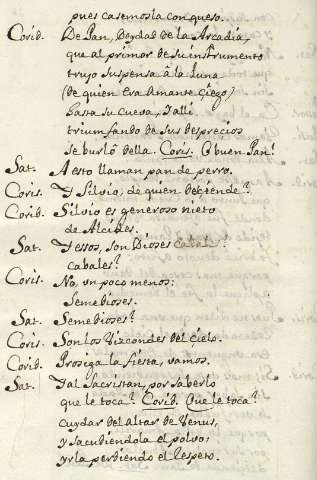 pues casemosla con queso.
Corib. De Pan, Deydad de la Arcadia,
que al primor de su instrumento
trujo suspensa à la Luna
(de quien era amante çiego)
hasta su cueva, y alli
triumfando de sus desprecios
se burlò della. Coris. O buen Pan!
Sat. A esto llaman pan de perro.
Coris. Y Silvio, de quien desçiende?
Corib. Silvio es generoso nieto
de Alcides.
Sat. Y essos, son Dioses cabales?
cabales?
Coris. No, un poco menos:
Semedioses.
Sat. Semedioses?
Coris. Son los Vizcondes del çielo.
Corib. Prosiga la fiesta, vamos.
Sat. Y al Sacristan, por saberlo
que le toca? Corib. Que le toca?
cuydar del altar de Venus,
y sacudiendola el polvo,
yrla perdiendo el respeto.